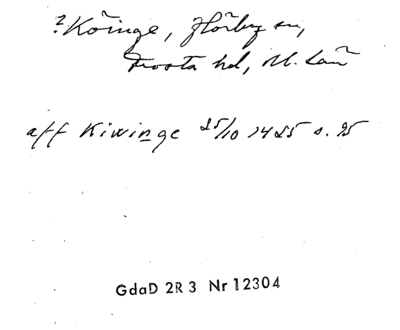 ?Köinge, Hörby sn,
Frosta hd, M. län
aff Kiwinge 25/10 1485 s. 95
GdaD 2R3 Nr 12304